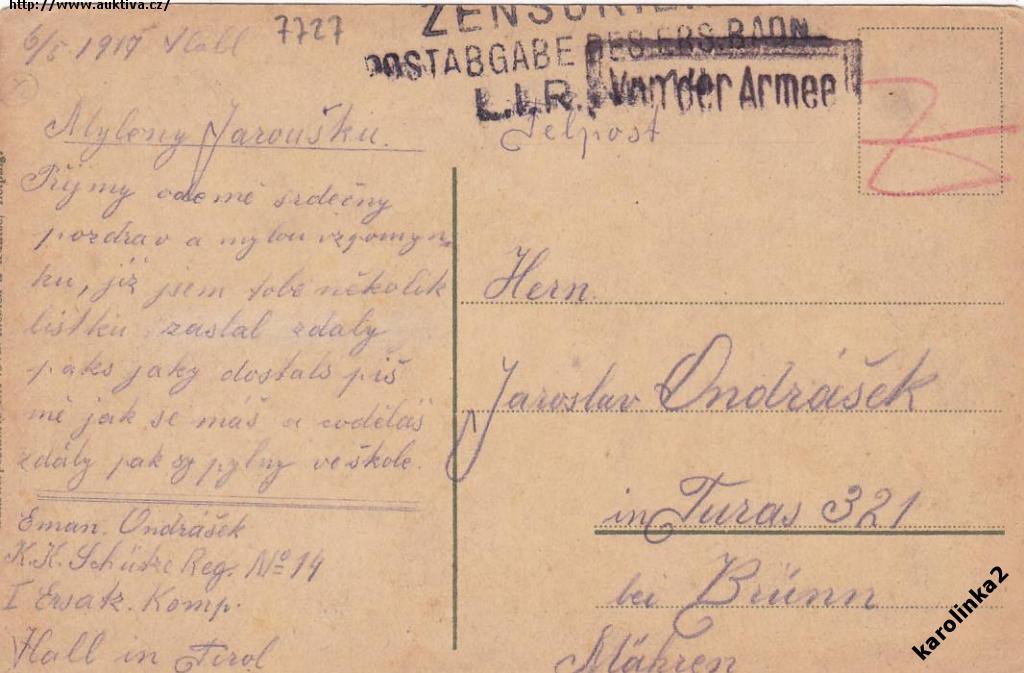 http://www.auktiva.cz/
6/5 1917 Hall
7727
ZENSURIE
POSTABGABE DES ERS. BAON
L.I.R.
Von der Armee
Felpost
Myleny Jaroušku.
Přijmy odemě srdečny
pozdrav a mylou vzpomyn
ku, již jsem tobě několik
listku zaslal zdaly
paks jaky dostals piš
mě jak se máš a codělaš
zdály pak sy pylny ve škole.
Eman. Ondrášek
K.K. Schütze Reg. No 14
I Ersatz. Komp.
Hall in Tirol
Hern.
Jaroslav Ondrášek
in Turas 321
bei Brünn
Mähren
karolinka2